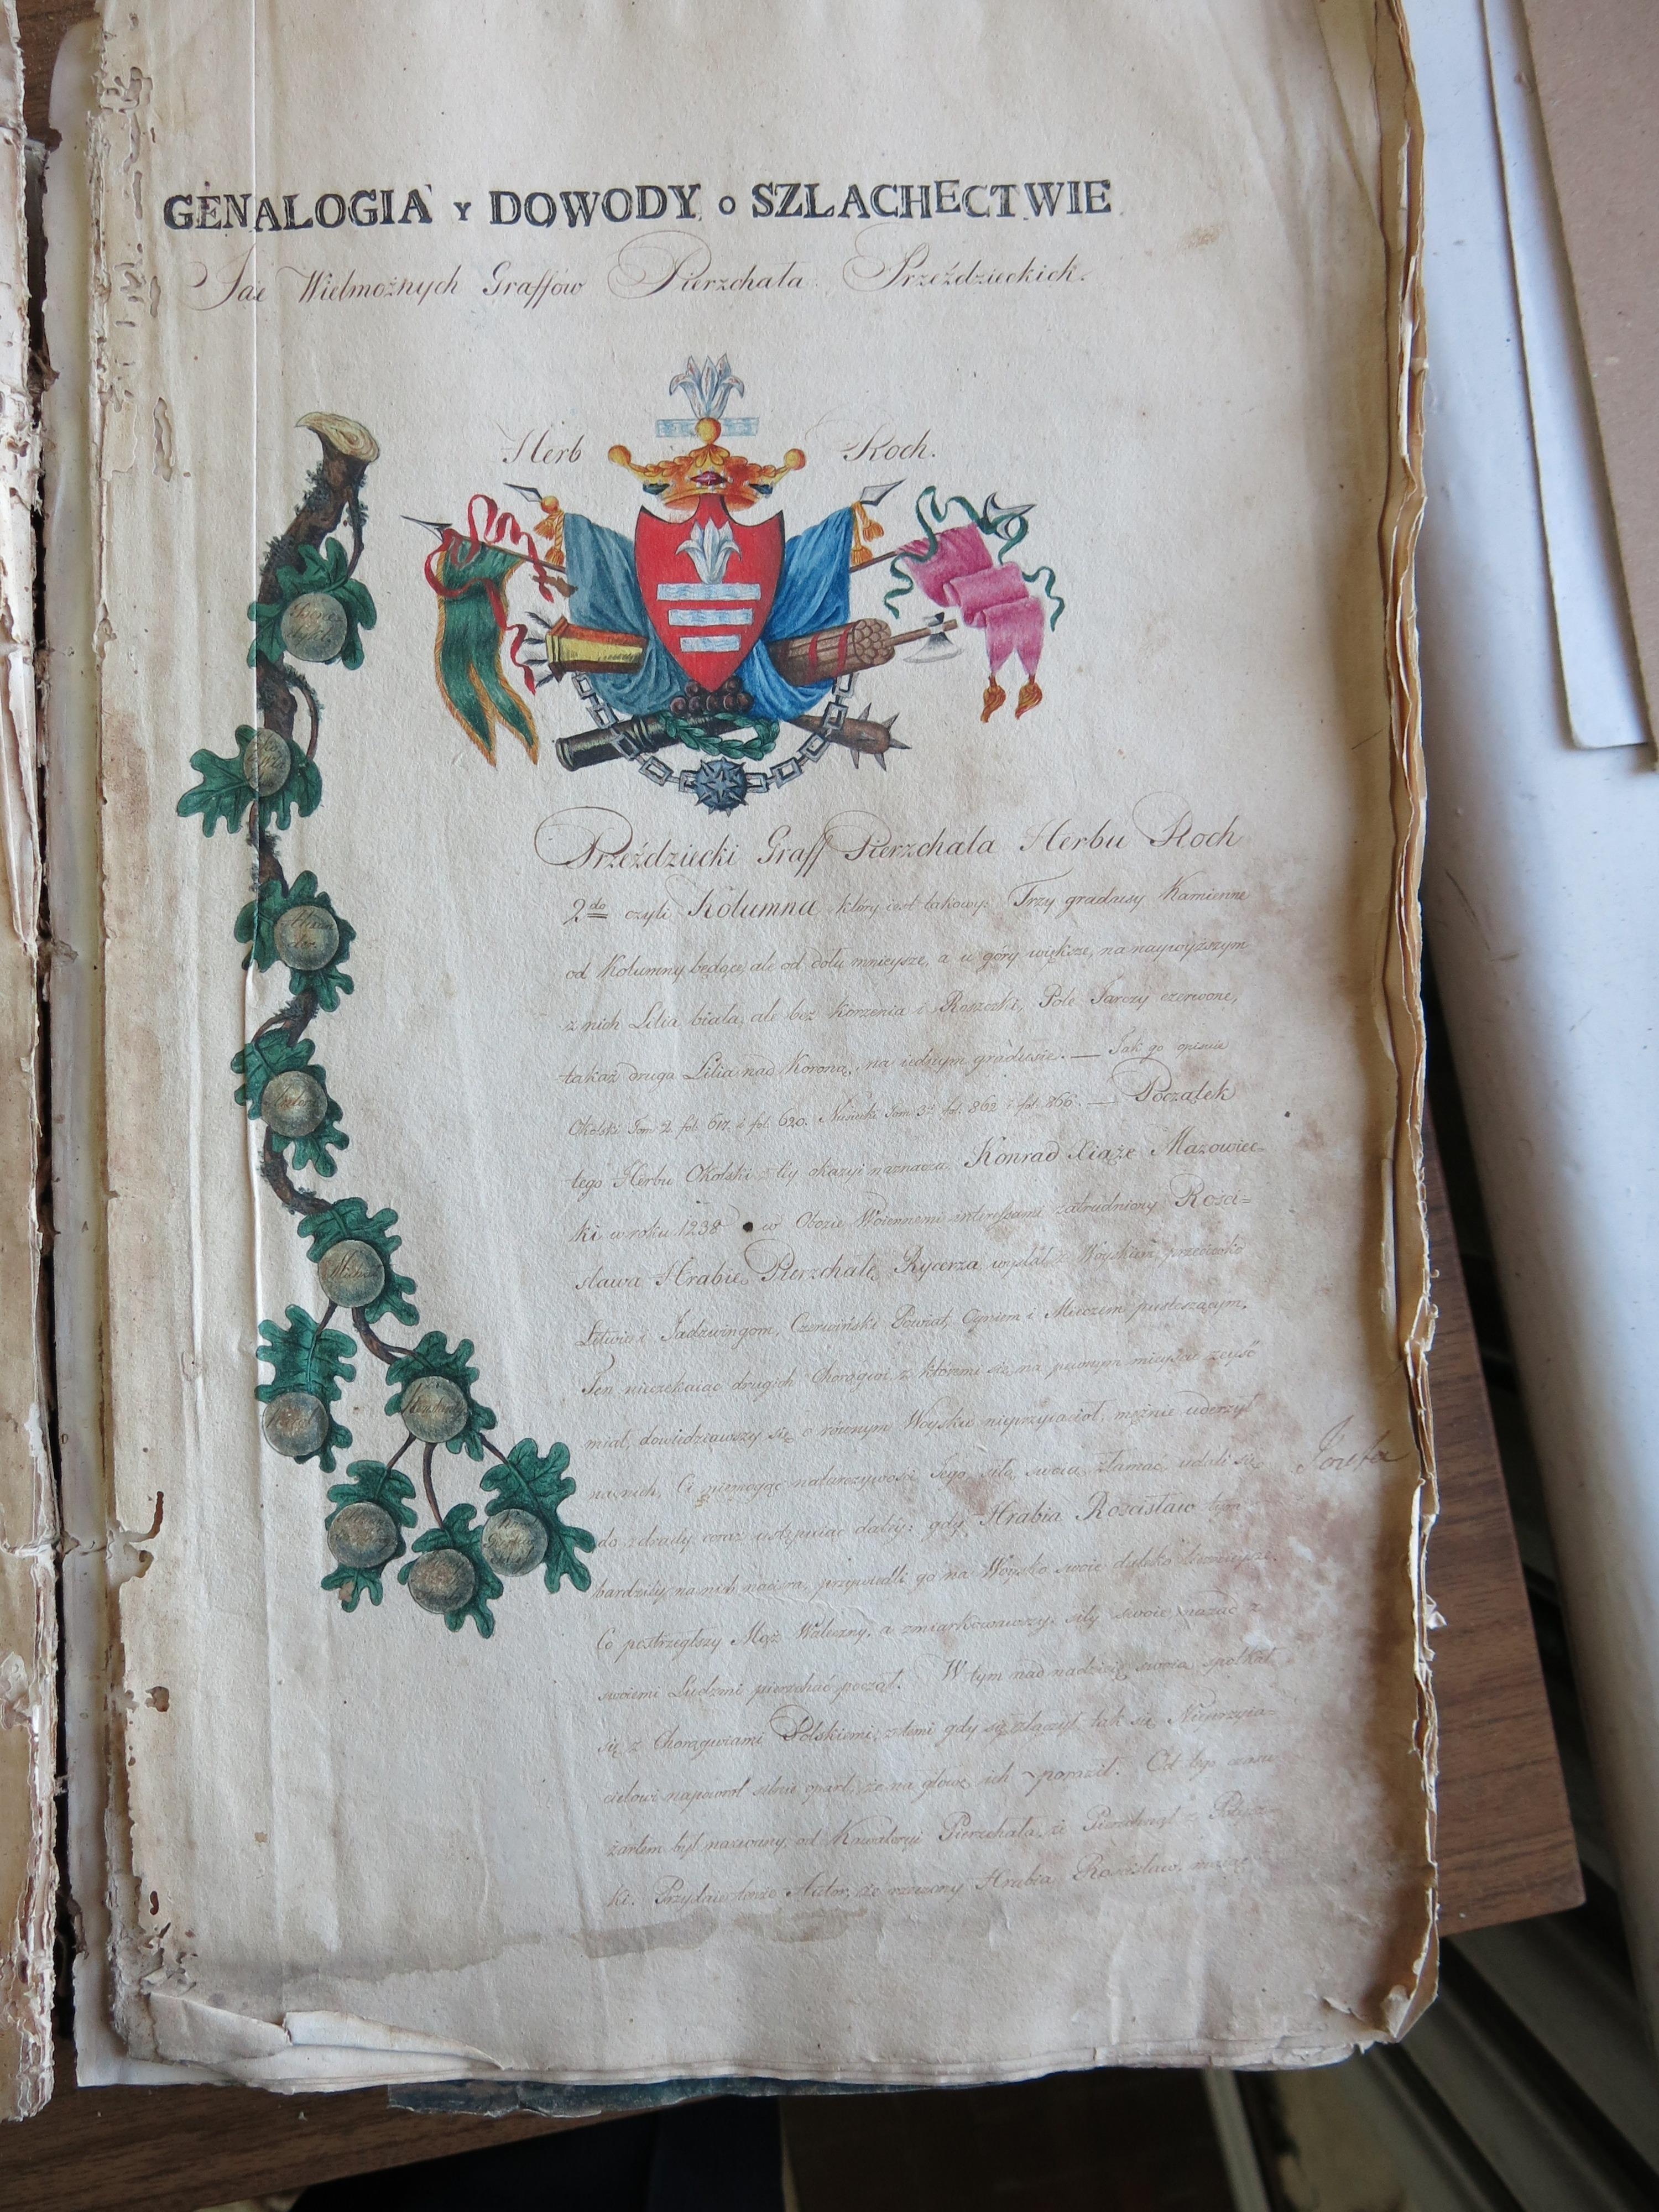 GENALOGIA Y DOWODY o SZLACHECTWIE
Jae Wielmożnych Graffów Pierzchała Przeździeckich.
Herb Roch.
Alexander.
Przeździecki Graff Pierzchała Herbu Roch
2do czyli Kolumna który iest takowy: Trzy gradusy Kamienne
od Kolumny będące, ale od dołu mnieysze, a u góry większe, na naywyższym
z nich Lilia biała, ale bez korzenia i Roszczki, Pole Tarczy czerwone,
takaż druga Lilia nad Koroną, na iednym gradusie. — Jak go opisuie
Okolski Tom 2. fol. 617. i fol. 620. Niesiecki Tom 3. fol. 862 i fol. 866. — Początek
tego Herbu Okolski z tey okazyi naznacza. Konrad Xiąże Mazowiec-
ki w roku 1238 w Obozie Woiennemi interessami zatrudniony Rości=
sława Hrabię Pierzchałę Rycerza wysłał z Woyskiem przeciwko
Litwie i Jadzwingom, Czerwiński Powiat, Ogniem i Mieczem pustoszącym.
Ten nieczekaiąc drugich Chorągwi z któremi się na pewnym mieyscu zeyść
miał, dowiedziawszy się o równym Woysku nieprzyiaciół, mężnie uderzył
na nich, Ci niemogąc natarczywości Jego siłą swoią złamać, udali się
do zdrady coraz ustępuiąc daley: gdy Hrabia Rościsław tym
bardziey na nich naciera, przywiedli go na Woysko swoie daleko licznieysze.
Co postrzegłszy Mąż Waleczny, a zmiarkowawszy siły swoie, nazad z
swoiemi Ludźmi pierzchać począł. W tym nad nadzieię swoią spotkał
się z Chorągwiami Polskiemi, z temi gdy się złączył, tak się Nieprzyia=
cielowi napowrot silnie oparł, że na głowę ich poraził. Od tego czasu
żartem był nazwany, od Kawaleryi Pierzchała, że Pierzchnął z Potycz-
ki. Przydaie tenże Autor, że rzeczony Hrabia Rościsław,
Józefa